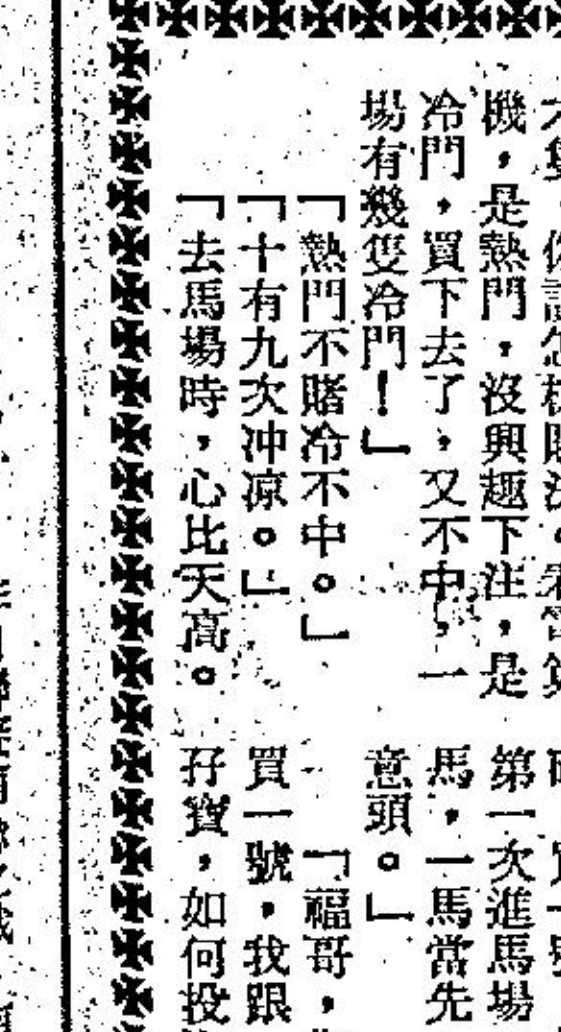 機，是熱門，沒興趣下注，是
冷門，買下去了，又不中，一
場有幾隻冷門！」
「熱門不賭冷不中。」
「十有九次冲凉。」
「去馬場時，心比天高。
第一次進馬場
馬，一馬當先
意頭。」
「福哥，
買一號，我跟
孖寶，如何投